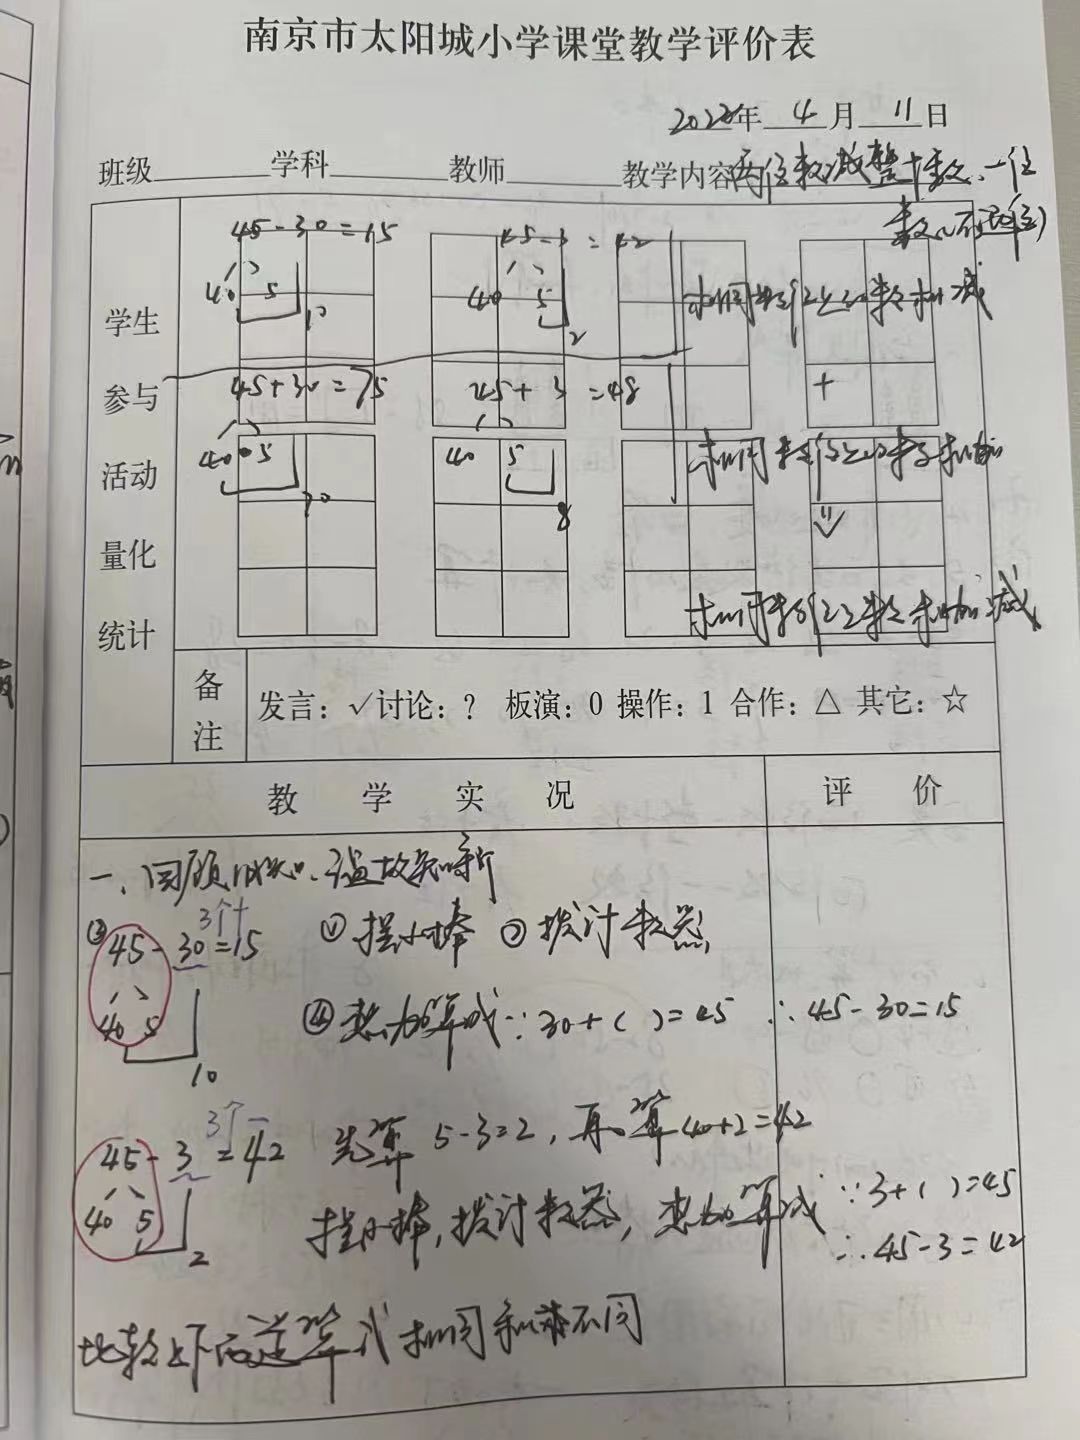 南京市太阳城小学课堂教学评价表
2023年 4 月 11 日
班级 学科 教师 教学内容 两位数减整十数、一位
数(不退位)
45-30=15 45-3=42
40 5 40 5 相同数位上的数相减
10 2
45+30=75 45+3=48 +
40 5 40 5 相同数位上的数相加
70 8
相同数位上数相加减
学生
参与
活动
量化
统计
备注 发言：√讨论：? 板演：0 操作：1 合作：△ 其它：☆
教 学 实 况 评 价
一、回顾旧知、温故知新
3个十
③ 45-30=15 ①摆小棒 ②拨计数器
40 5 ④想加算减∵30+( )=45 ∴45-30=15
10
3个一
45-3=42 先算5-3=2，再算40+2=42
40 5 摆小棒，拨计数器，想加算减 ∵3+( )=45
2 ∴45-3=42
比较上下两道算式相同和不同